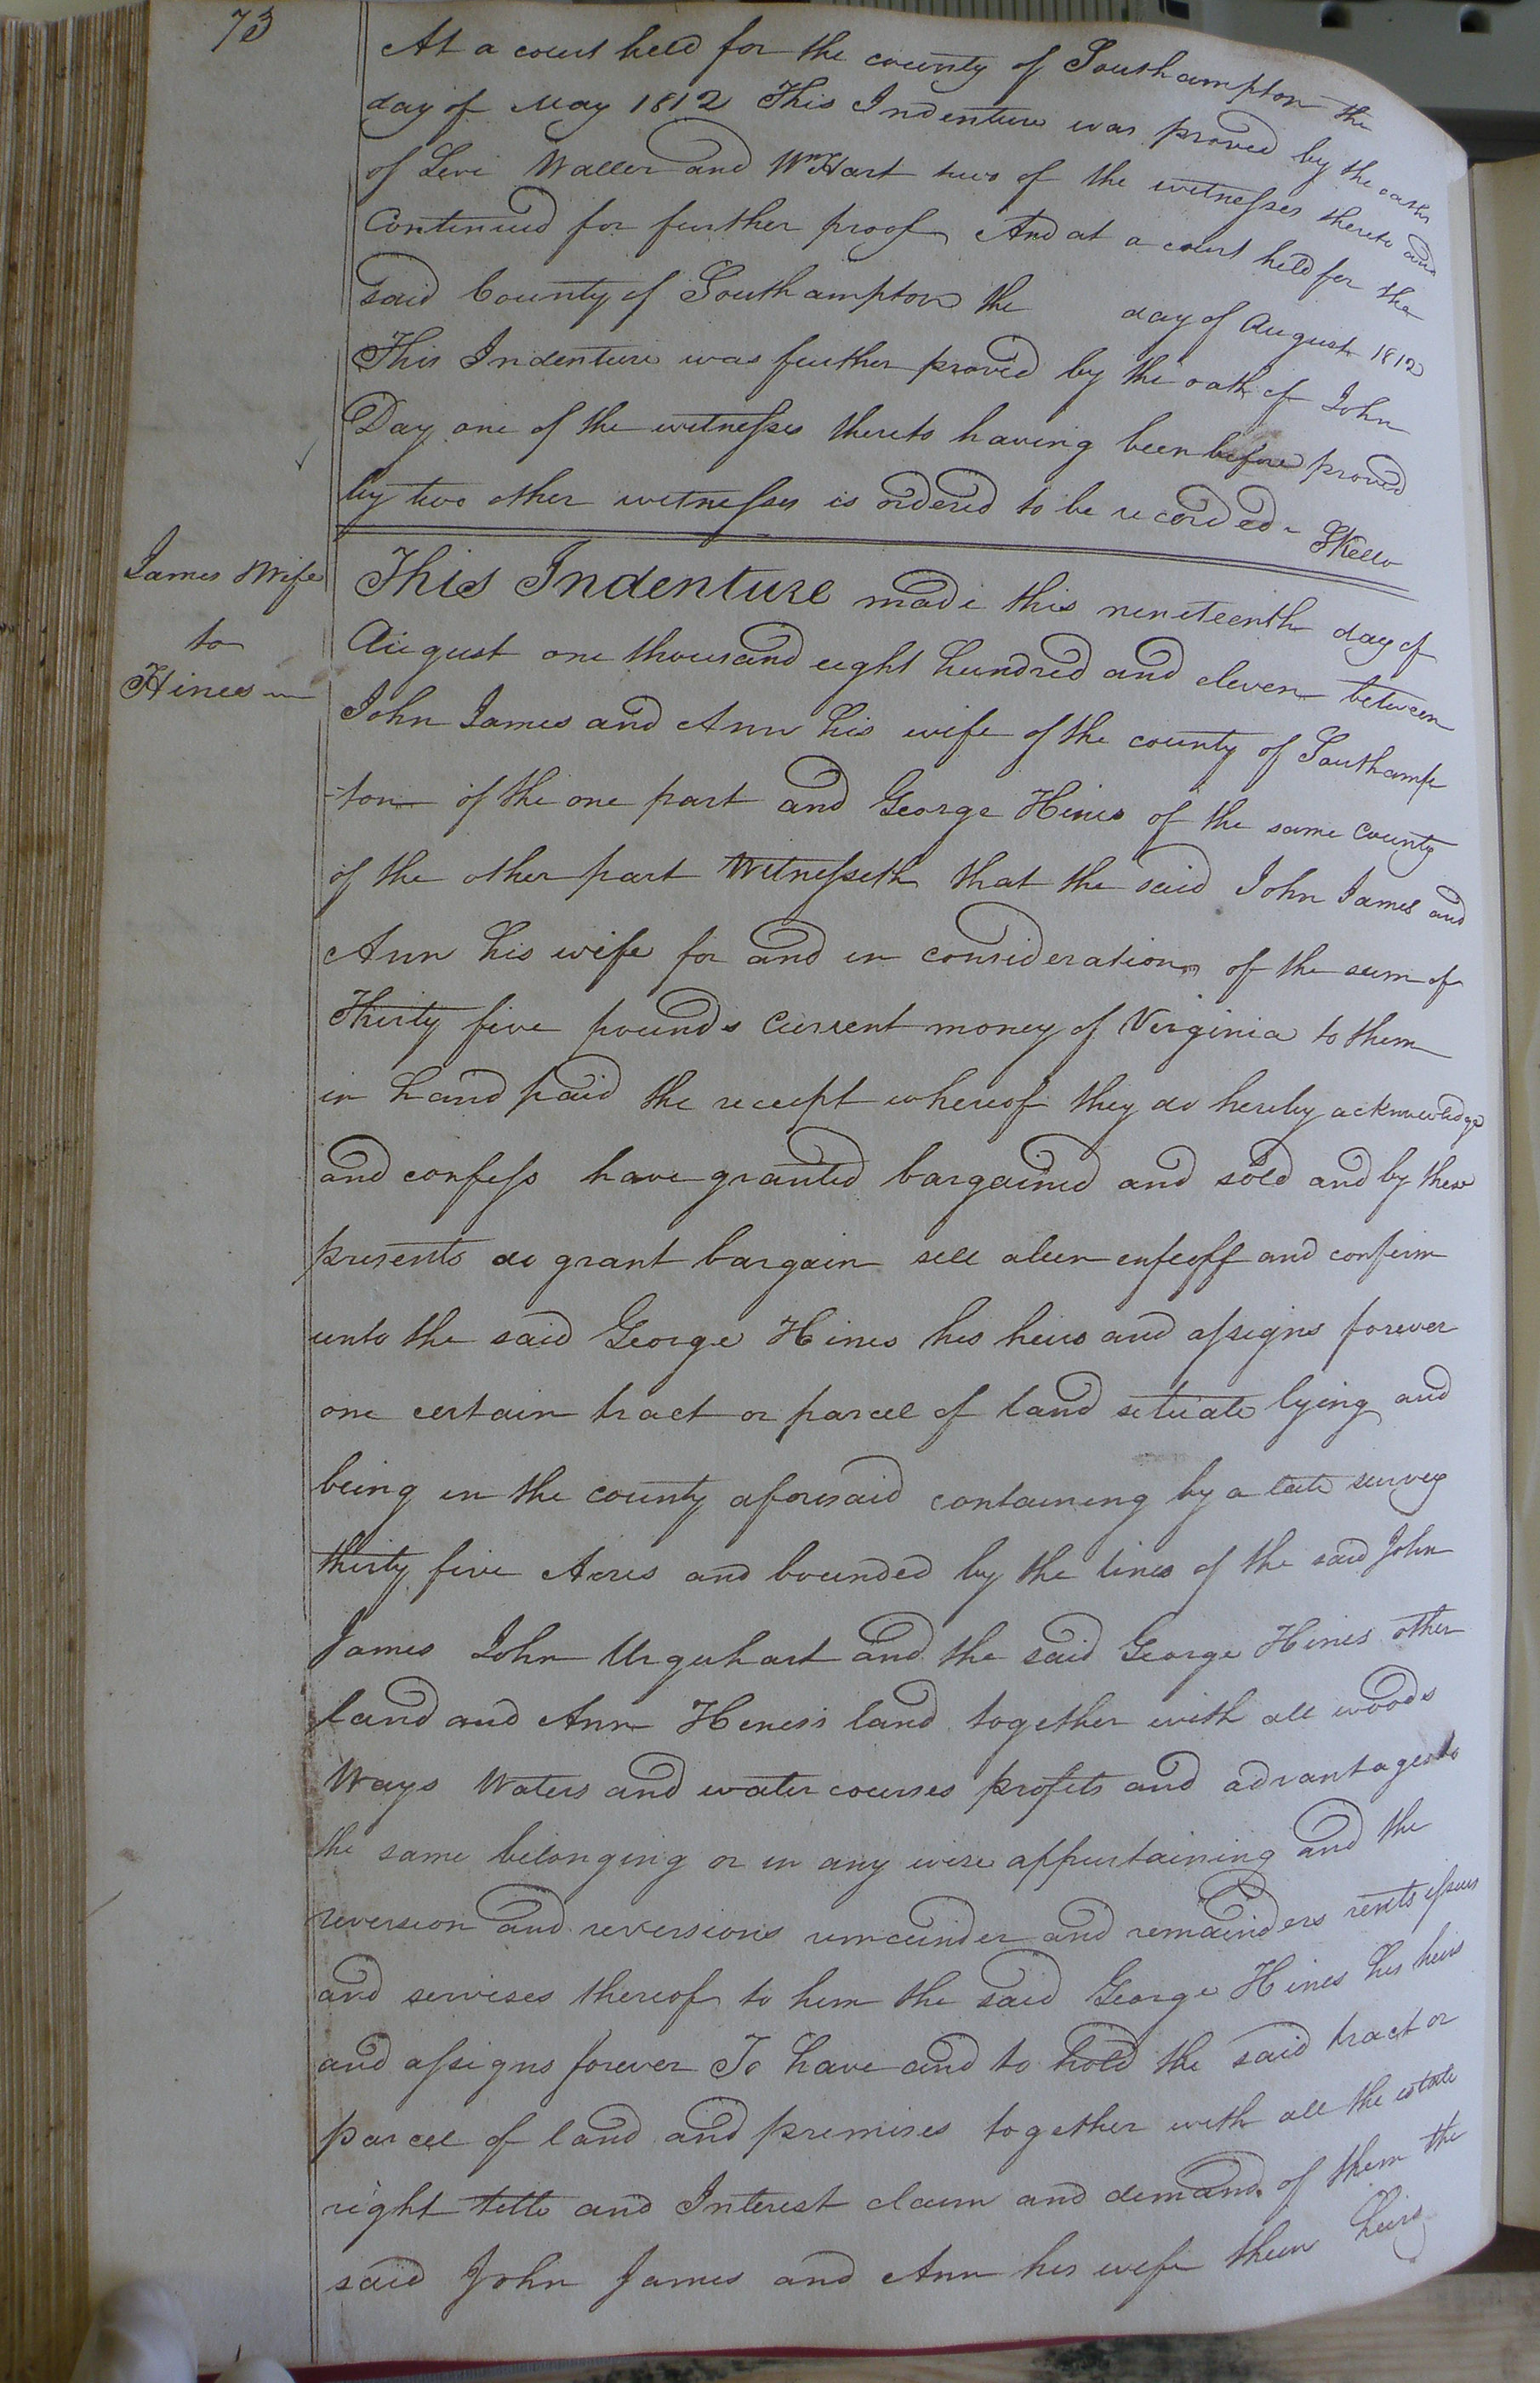 73
At a court held for the county of Southampton the
day of May 1812 This Indenture was proved by the oaths
of Levi Waller and Wm Hart two of the witnesses thereto and
Continued for further proof And at a court held for the
said County of Southampton the day of August 1812
This Indenture was further proved by the oath of John
Day one of the witnesses thereto having been before proved
by two other witnesses is ordered to be recorded
SKello
James & Wife
to
Hines
This Indenture made this nineteenth day of
August one thousand eight hundred and eleven between
John James and Ann his wife of the county of Southamp
-ton of the one part and George Hines of the same County
of the other part Witnesseth that the said John James and
Ann his wife for and in consideration of the sum of
Thirty five pounds Current money of Virginia to them
in hand paid the receipt whereof they do hereby acknowledge
and confess have granted bargained and sold and by these
presents do grant bargain sell alien enfeoff and confirm
unto the said George Hines his heirs and assigns forever
one certain tract or parcel of land situate lying and
being in the county aforesaid containing by a late survey
thirty five Acres and bounded by the lines of the said John
James John Urquhart and the said George Hines other
land and Ann Hines's land together with all woods
Ways Waters and water courses profits and advantages to
the same belonging or in any wise appurtaining and the
reversion and reversions remainder and remainders rents issues
and servises thereof to him the said George Hines his heirs
and assigns forever To have and to hold the said tract or
parcel of land and premises together with all the estate
right title and Interest claim and demand of them the
said John James and Ann his wife their heirs